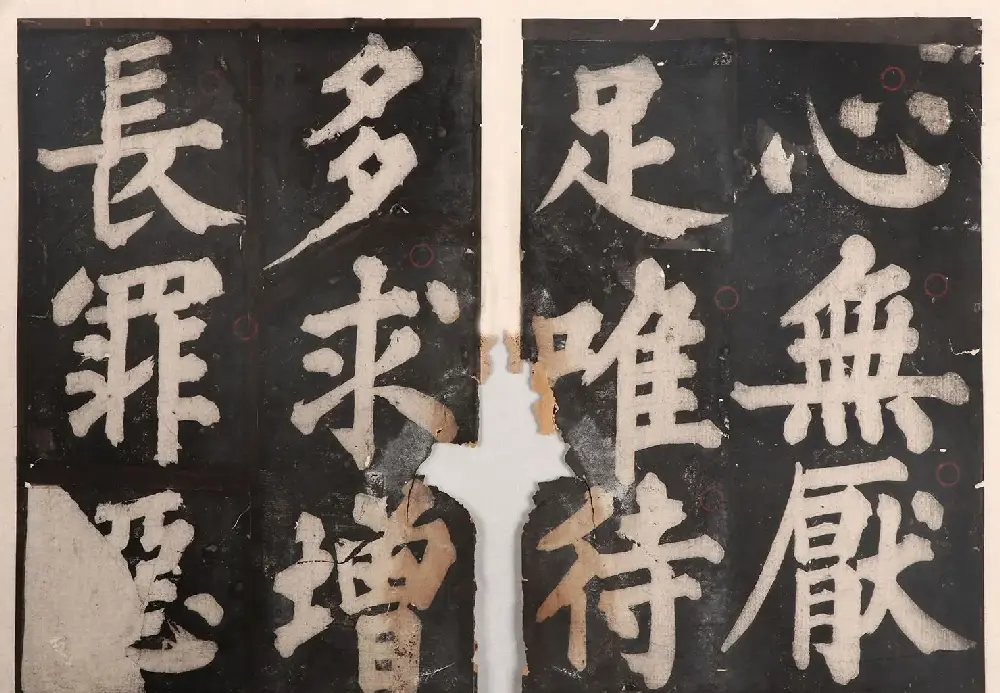 心無厭
足唯待
多求增
長罪惡